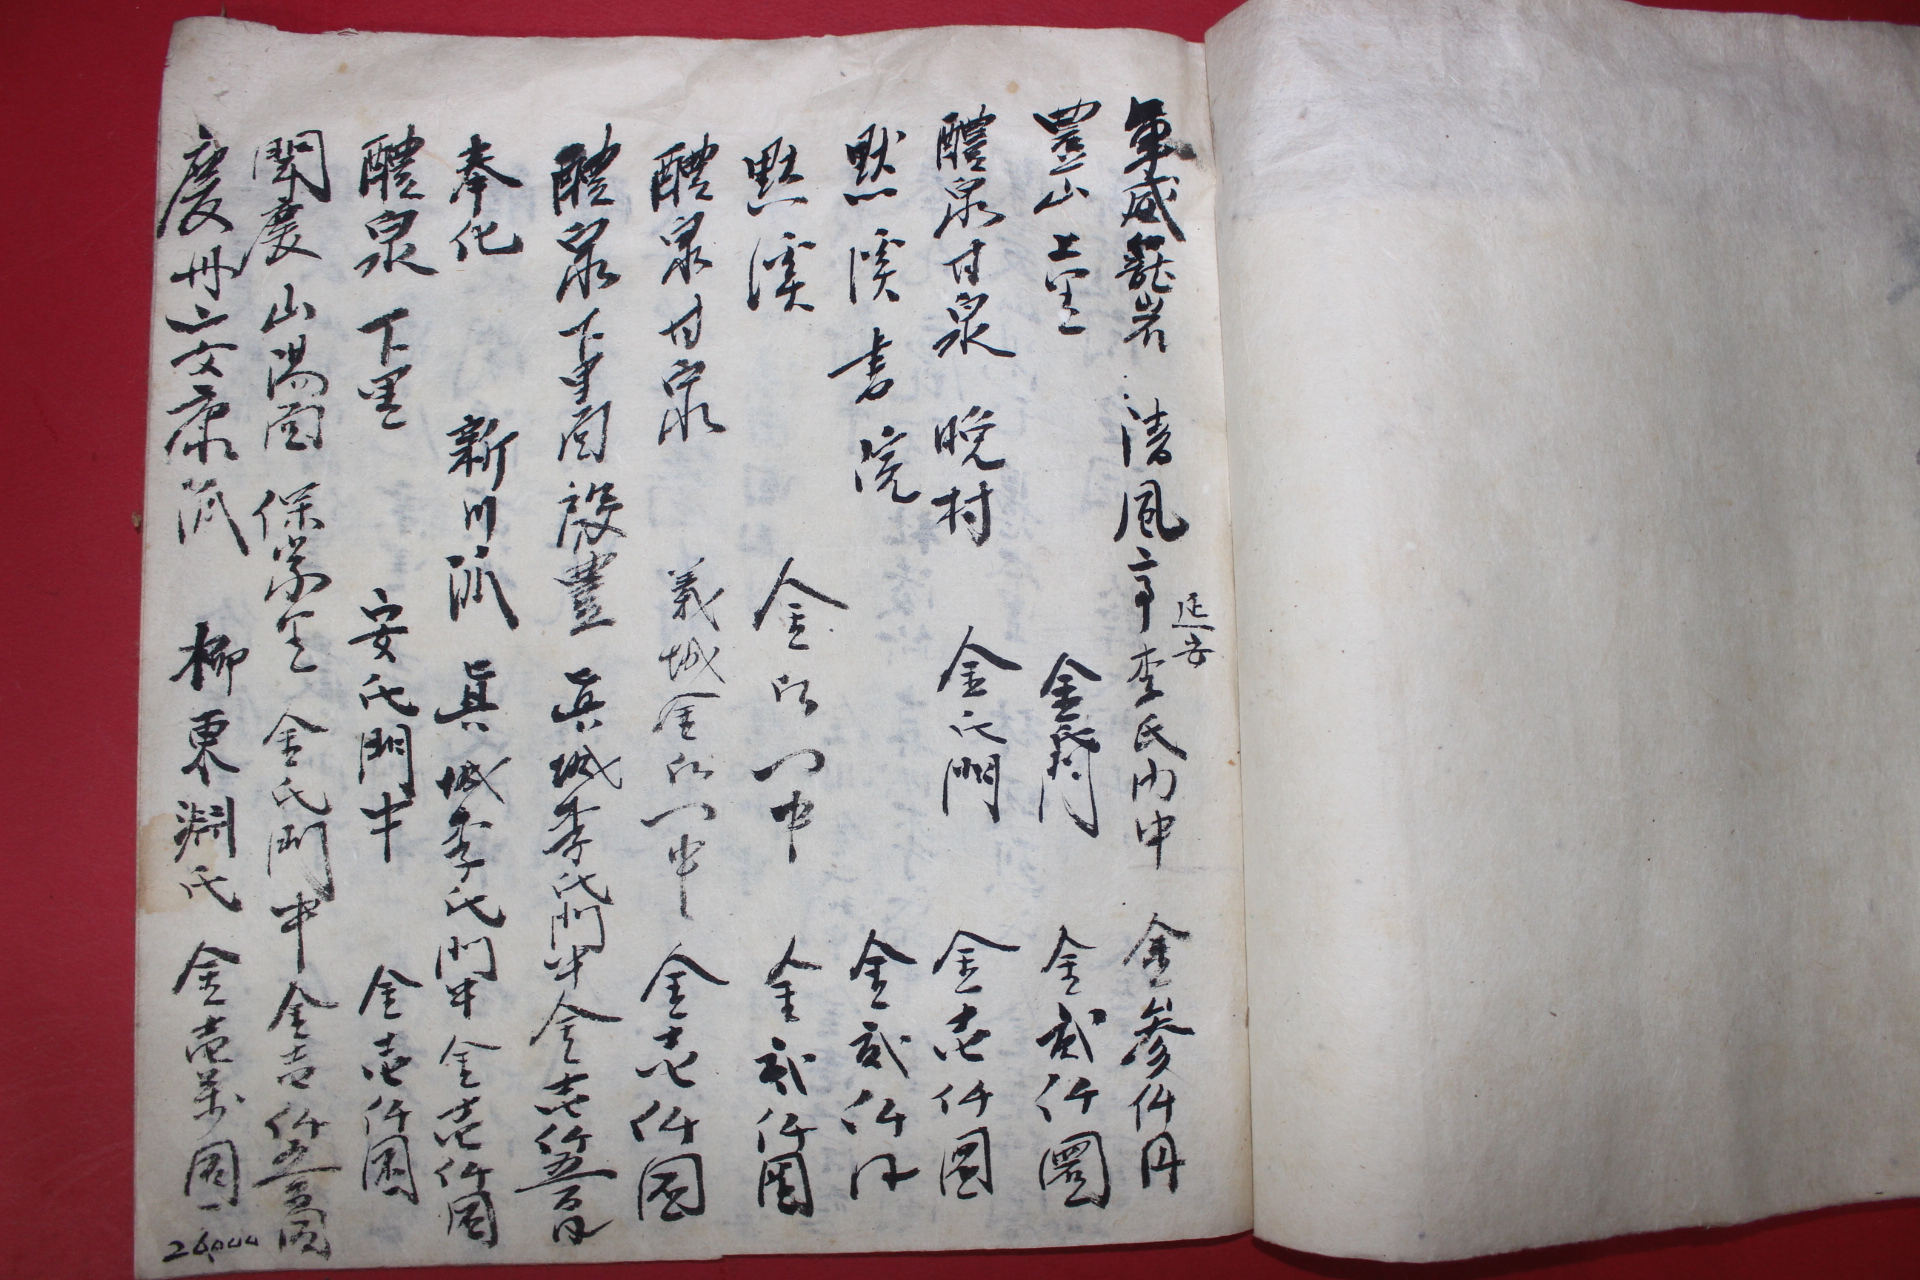 軍威龍岩 清風亭 延安 李氏門中 金參仟円
豊山 上里 金氏門 金貳仟圜
醴泉甘泉 晩村 金氏門 金壱仟圜
默溪書院 金貳仟円
默溪 金氏門中 金貳仟圜
醴泉甘泉 義城金氏門中 金壱仟圜
醴泉下里面 殷豊 眞城李氏門中 金壱仟五百円
奉化 新川派 眞城李氏門中 金壱仟圜
醴泉 下里 安氏門中 金壱仟圜
聞慶山陽面 保 里 金氏門中 金壱仟五百圜
慶州 文康派 柳東淵氏 金壱萬圜
26000